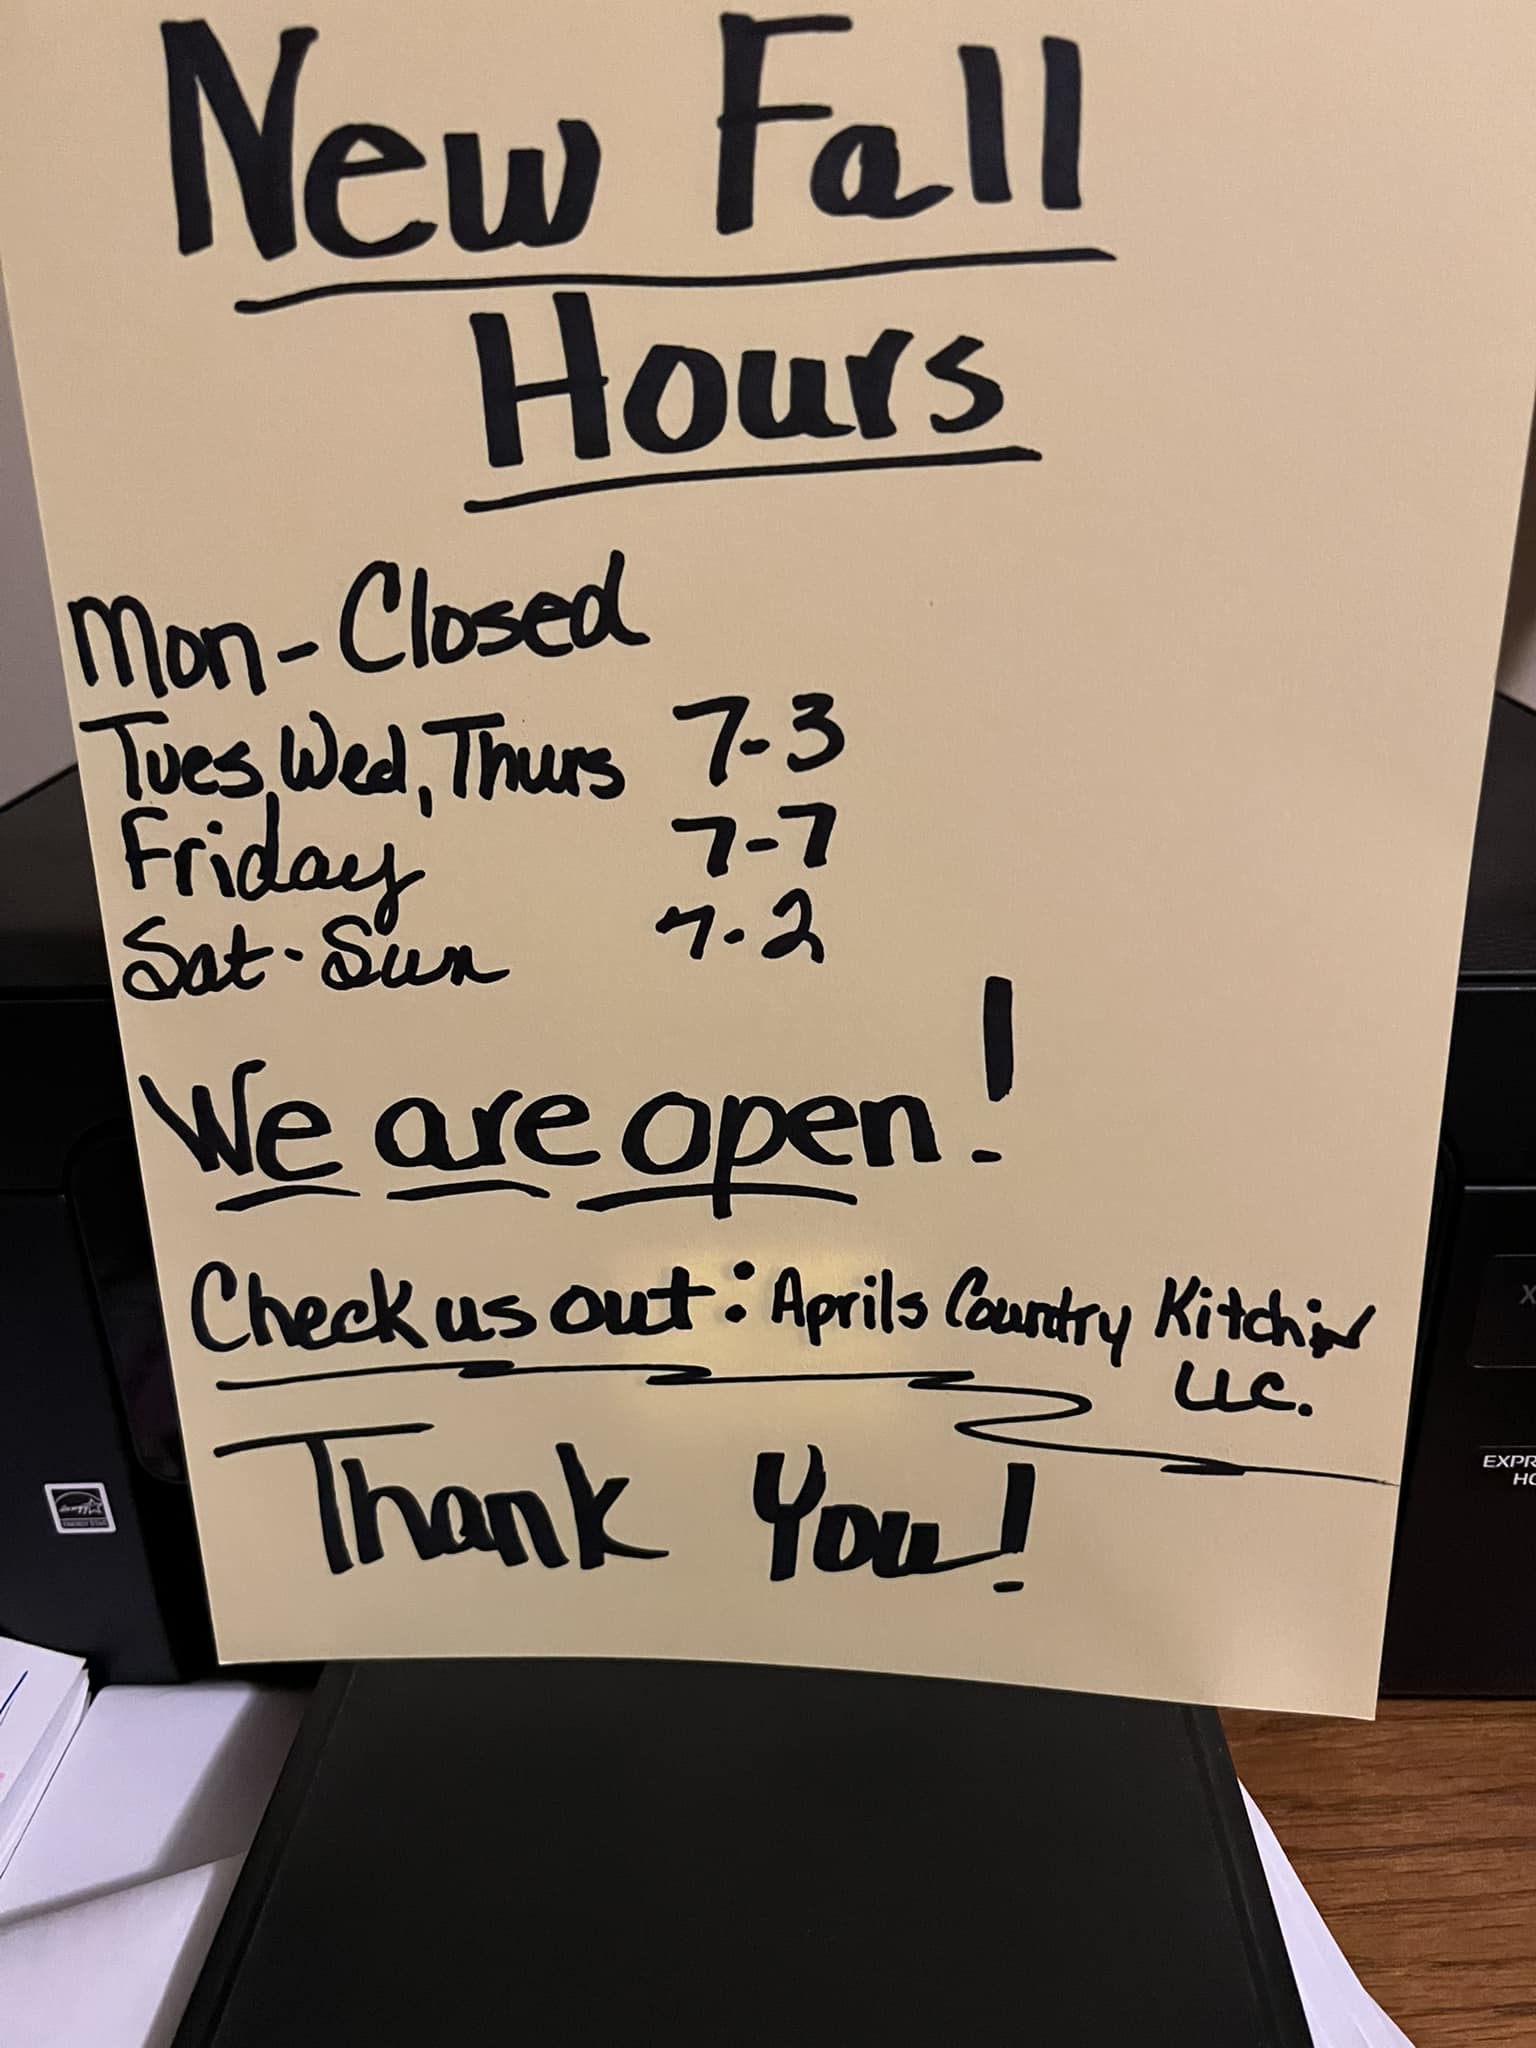 New Fall
Hours
Mon - Closed
Tues, Wed, Thurs 7-3
Friday 7-7
Sat - Sun 7-2
We are open!
Check us out: Aprils Country Kitchin
LLC.
Thank You!
ENERGY STAR
X
EXPR
HO